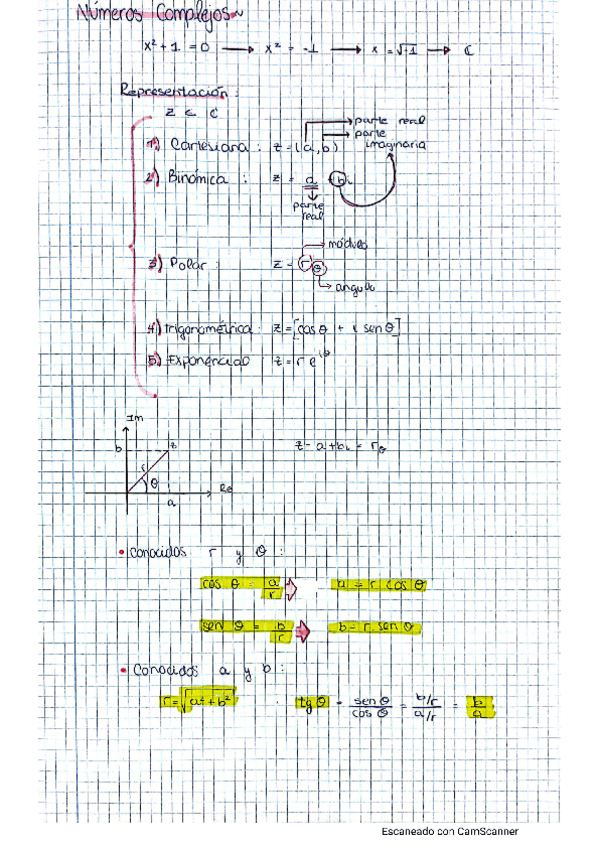 Números Complejos
x² + 1 = 0 → x² = -1 → x = √-1 → ℂ
Representación:
z ∈ ℂ
1) Cartesiana: z = (a, b) → parte real → parte imaginaria
2) Binómica: z = a + bi
parte real
3) Polar: z = r θ → módulo
→ angulo
4) trigonométrica: z = [cos θ + i sen θ]
5) Exponencial: z = r e^iθ
Im
b z
r
θ
Re
a
z = a + bi = r_θ
• Conocidos r y θ:
cos θ = a/r ⇒ a = r cos θ
sen θ = b/r ⇒ b = r sen θ
• Conocidos a y b:
r = √a² + b² tg θ = sen θ/cos θ = b/r / a/r = b/a
Escaneado con CamScanner